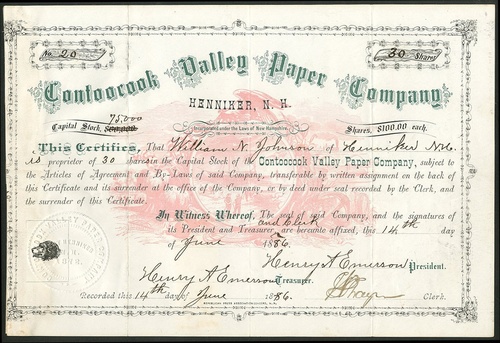 No. 20
30 Shares
Contoocook Valley Paper Company
HENNIKER, N. H.
75,000
Capital Stock,
Incorporated under the Laws of New Hampshire.
Shares, $100.00 each.
This Certifies, That William N. Johnson of Henniker N.H.
is proprietor of 30 shares in the Capital Stock of the Contoocook Valley Paper Company, subject to
the Articles of Agreement and By-Laws of said Company, transferable by written assignment on the back of
this Certificate and its surrender at the office of the Company, or by deed under seal recorded by the Clerk, and
the surrender of this Certificate.
In Witness Whereof, The seal of said Company, and the signatures of
and Clerk
its President and Treasurer are hereunto affixed, this 14th day
of June 1886.
Henry A Emerson President.
Henry A Emerson Treasurer.
Recorded this 14th day of June 1886. Clerk.